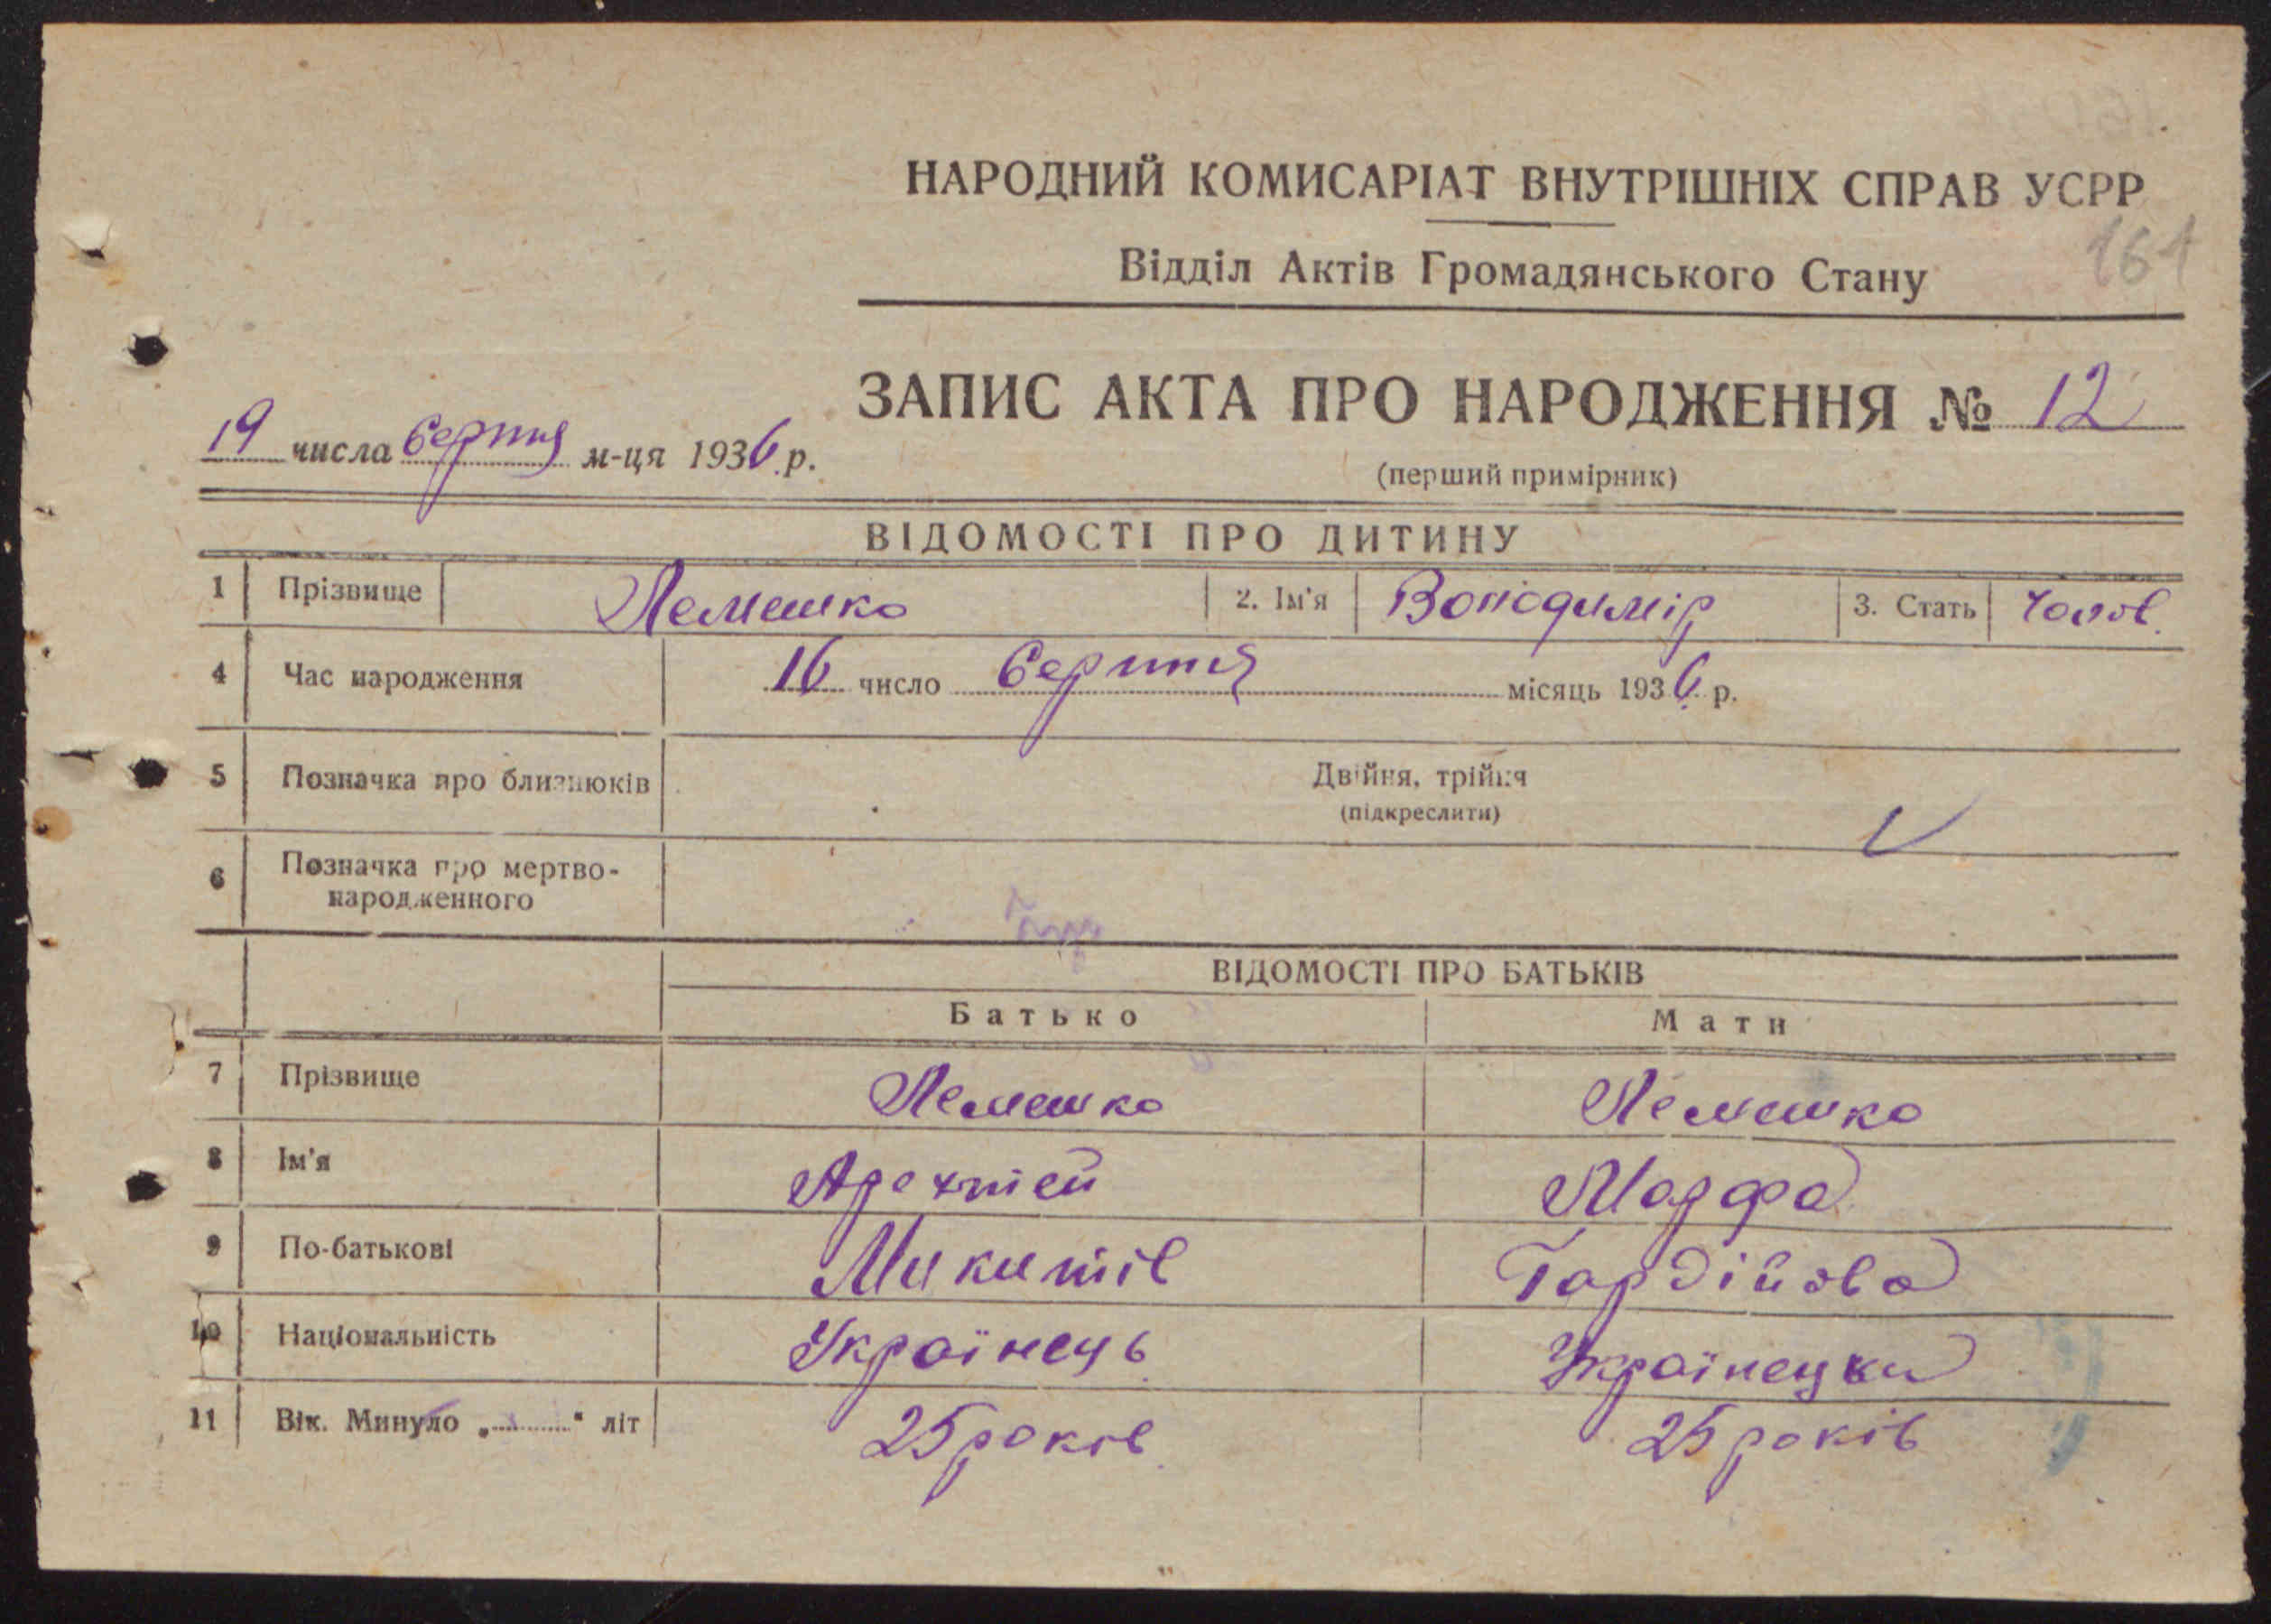 НАРОДНИЙ КОМИСАРІАТ ВНУТРІШНІХ СПРАВ УСРР
161
Відділ Актів Громадянського Стану
ЗАПИС АКТА ПРО НАРОДЖЕННЯ № 12
19 числа Серпня м-ця 1936 р.
(перший примірник)
ВІДОМОСТІ ПРО ДИТИНУ
1 Прізвище Лемешко 2. Ім'я Володимір 3. Стать Чолов.
4 Час народження 16 число Серпня місяць 1936 р.
5 Позначка про близнюків Двійня, трійня
(підкреслити)
6 Позначка про мертво-
народженного
ВІДОМОСТІ ПРО БАТЬКІВ
Батько Мати
7 Прізвище Лемешко Лемешко
8 Ім'я Марфа
9 По-батькові Микитів Гордійова
10 Національність Українець Українецки
11 Вік. Минуло „ " літ 25 років 25 років